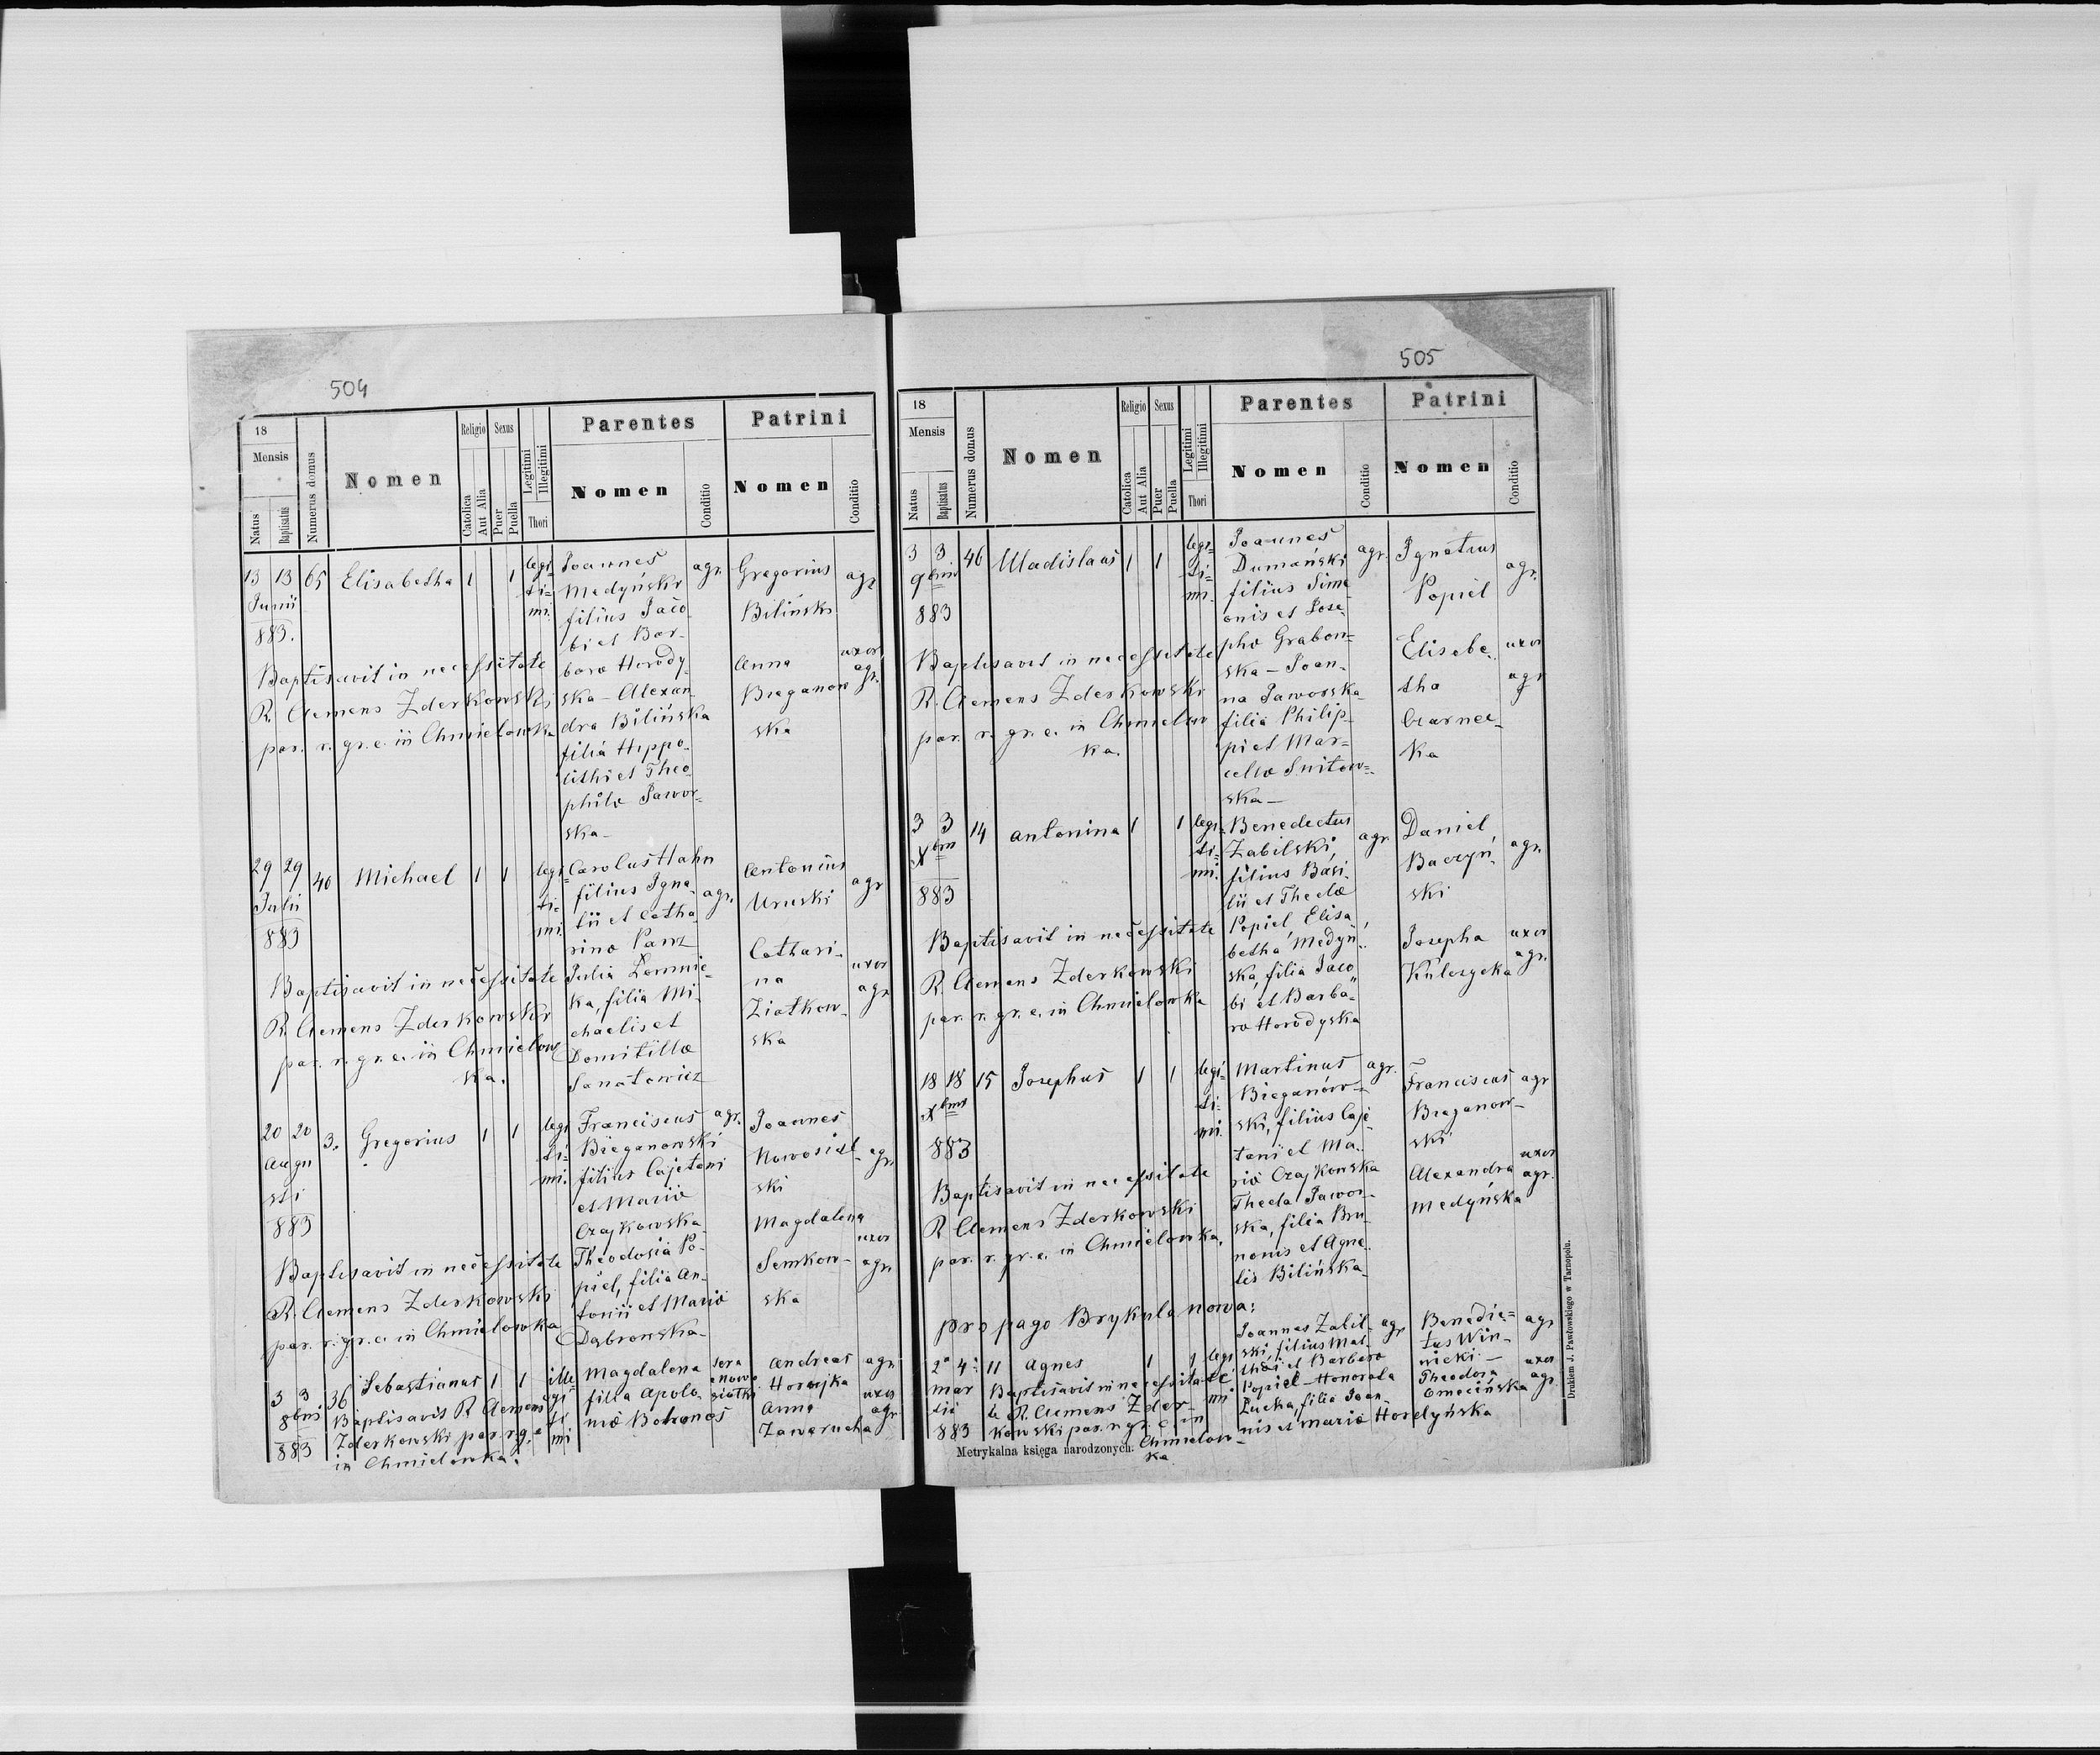 504
18
Mensis
Natus
Baptisatus
Numerus domus
Nomen
Religio
Catolica
Aut Alia
Sexus
Puer
Puella
Legitimi
Illegitimi
Thori
Parentes
Nomen
Conditio
Patrini
Nomen
Conditio
13 13 65 Elisabetha 1 1 legi=
Junii
883.
ti=
mi.
Joannes agr.
Medyński
filius Jaco
bi et Bar-
bara Horody
ska - Alexan
dra Bilińska
filia Hippo-
lithi et Theo
phila Jawor=
ska-
Gregorius agr
Biliński
Anna uxor
Bieganow agr.
ska
Baptisavit in necessitate
R. Clemens Zderkowski
par. r. gr. c. in Chmielowka
29 29 40 Michael 1 1 legi=
Julii
883
ti=
mi.
Carolus Hahn
filius Igna agr.
tii et Catha
rina Panz
Julia Lomnic-
ka, filia Mi-
chaelis et
Domitilla
Sanatowicz
Antonius agr
Uruski
Cathari-
na uxor
agr
Ziatkow-
ska
Baptisavit in necessitate
R. Clemens Zderkowski
par. r. gr. c. in Chmielow
ka.
20 20 3. Gregorius 1 1 legi
Augu
sti
883
ti=
mi.
Franciscus agr.
Bieganowski
filius Cajetani
et Maria
Czajkowska
Theodosia Po-
piel, filia An-
tonii et Maria
Dąbrowska-
Joannes
Nowosiel- agr.
ski
Magdalena
uxor
Semkow- agr
ska
Baptisavit in necessitate
R. Clemens Zderkowski
par. r. gr. c. in Chmielowka
3 3 36 Sebastianus 1 1 ille
8bris
883
gi=
ti
mi
Magdalena
filia Apolo-
nia
Andreas agr
Horajka
Anna uxor
agr
Zawerucha
Baptisavit R. Clemens
Zderkowski par. r. g. c
in Chmielowka.
505
18
Mensis
Natus
Baptisatus
Numerus domus
Nomen
Religio
Catolica
Aut Alia
Sexus
Puer
Puella
Legitimi
Illegitimi
Thori
Parentes
Nomen
Conditio
Patrini
Nomen
Conditio
3 3 46 Uladislaus 1 1 legi=
9bris
883
ti=
mi.
Joannes
Dumański agr.
filius Sime
onis et Jose
pha Grabow=
ska - Joan-
na Jaworska
filia Philip-
pi et Mar=
cella Snitow=
ska -
Ignatius
Popiel agr.
Elisabe uxor
tha agr
Czarnec-
ka
Baptisavit in necessitate
R. Clemens Zderkowski
par. r. gr. c. in Chmielow
ka.
3 3 14 Antonina 1 1 legi=
Xbris
883
ti=
mi.
Benedictus
Zabilski, agr
filius Basi-
lii et Thecla
Popiel, Elisa
betha Medyń
ska, filia Jaco
bi et Barba=
ra Horodyska
Daniel
Baczyń- agr.
ski
Josepha uxor
Kulczycka agr.
Baptisavit in necessitate
R. Clemens Zderkowski
par. r. gr. c. in Chmielowka
18 18 15 Josephus 1 1 legi=
Xbris
883
ti=
mi.
Martinus agr.
Bieganow=
ski, filius Caje
tani et Ma-
ria Czajkowska
Thecla Jawor-
ska, filia Bru
nonis et Agne
tis Bilińska
Franciscus agr
Bieganow-
ski
uxor
Alexandra agr.
Medyńska
Baptisavit in necessitate
R. Clemens Zderkowski
par. r. gr. c. in Chmielowka.
pro pago Brykula nowa:
2 4 11 Agnes 1 1 legi
mar
tii
883
ti
mi
Joannes Zabil- agr
ski, filius Mat
thäi et Barbara
Popiel - Honorata
Łucka, filia Joan
nis et Maria Hordyńska
Benedic= agr
tus Win-
nicki -
Theodora uxor
agr.
Baptisavit in necessita
te R. Clemens Zder-
kowski par. r. gr. c. in
Chmielow-
ka.
Metrykalna księga narodzonych.
Drukiem J. Pawłowskiego w Tarnopolu.